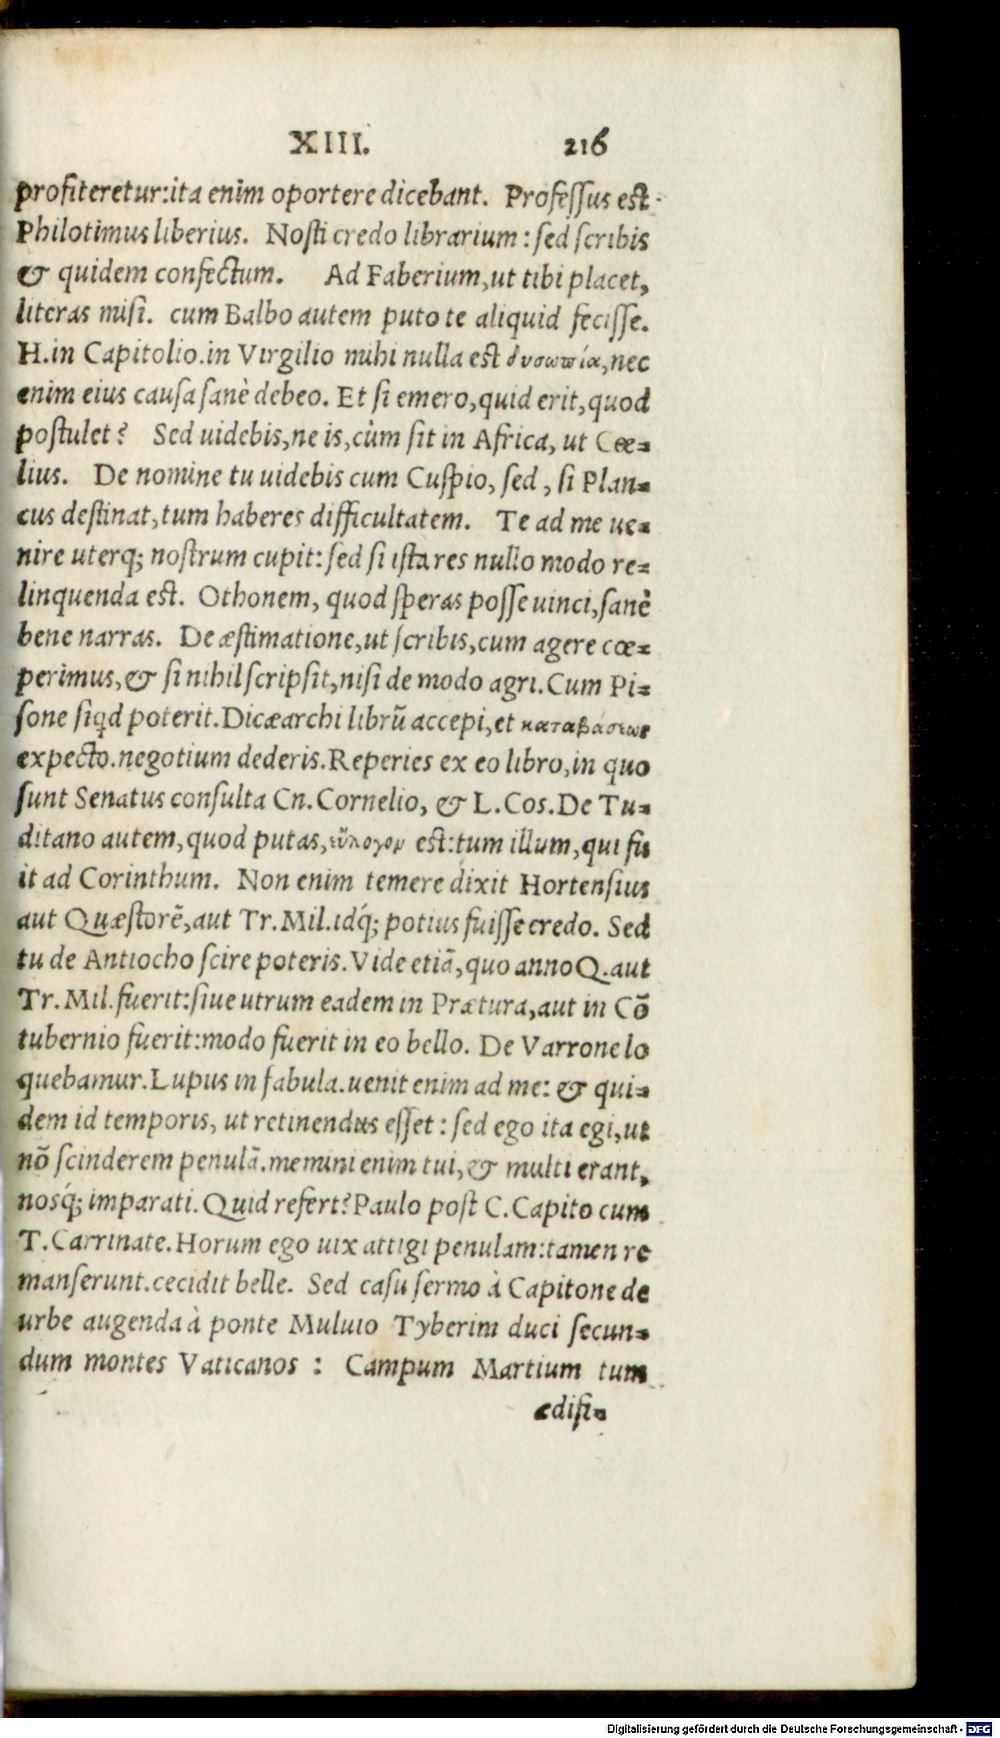 XIII. 216
profiteretur:ita enim oportere dicebant. Professus est
Philotimus liberius. Nosti credo librarium : sed scribis
& quidem confectum. Ad Faberium,ut tibi placet,
literas misi. cum Balbo autem puto te aliquid fecisse.
H.in Capitolio.in Virgilio mihi nulla est δυσωπία,nec
enim eius causa sanè debeo. Et si emero,quid erit,quod
postulet? Sed uidebis,ne is,cùm sit in Africa, ut Cœ-
lius. De nomine tu uidebis cum Cuspio, sed , si Plan-
cus destinat,tum haberes difficultatem. Te ad me ue-
nire uterq; nostrum cupit: sed si ista res nullo modo re-
linquenda est. Othonem, quod speras posse uinci,sanè
bene narras. De æstimatione,ut scribis,cum agere cœ-
perimus,& si nihil scripsit,nisi de modo agri.Cum Pi-
sone siqd poterit.Dicæarchi librū accepi,et καταβάσεως
expecto.negotium dederis.Reperies ex eo libro,in quo
sunt Senatus consulta Cn.Cornelio, & L.Cos.De Tu-
ditano autem,quod putas,εὔλογον est:tum illum,qui fu
it ad Corinthum. Non enim temere dixit Hortensius
aut Quæstorē,aut Tr.Mil.idq́; potius fuisse credo. Sed
tu de Antiocho scire poteris.Vide etiā,quo anno Q.aut
Tr.Mil.fuerit:siue utrum eadem in Prætura,aut in Cō
tubernio fuerit:modo fuerit in eo bello. De Varrone lo
quebamur.Lupus in fabula.uenit enim ad me: & qui-
dem id temporis, ut retinendus esset : sed ego ita egi,ut
nō scinderem penulā.memini enim tui,& multi erant,
nosq́; imparati.Quid refert?Paulo post C.Capito cum
T.Carrinate.Horum ego uix attigi penulam:tamen re
manserunt.cecidit belle. Sed casu sermo à Capitone de
urbe augenda à ponte Muluio Tyberim duci secun-
dum montes Vaticanos : Campum Martium tum
ædifi-
Digitalisierung gefördert durch die Deutsche Forschungsgemeinschaft - DFG